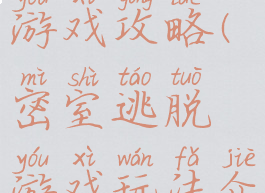 yóu xì gōng lüè
游戏攻略(
mì shì táo tuō
密室逃脱
yóu xì wán fǎ jiè
游戏玩法介